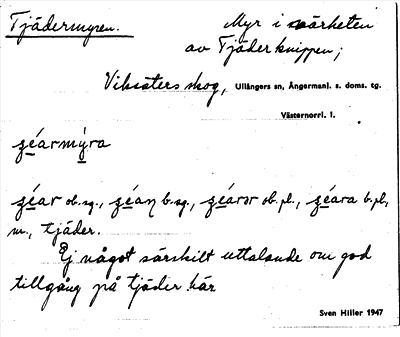 Tjädermyren.
Myr i närheten
av Tjäderknippen;
Vibsäters skog, Ullångers sn, Ångermanl. s. doms. tg.
Västernorrl. l.
géarmýra
géar ob. sg., géaꞃ b. sg., géarər ob. pl., géara b. pl.,
m., tjäder.
Ej något särskilt uttalande om god
tillgång på tjäder här
Sven Hiller 1947